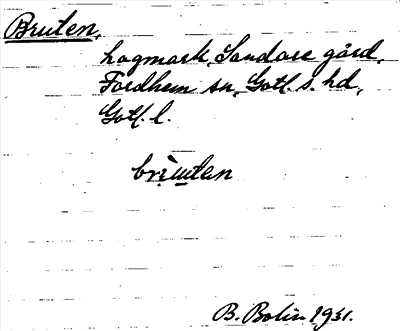 Bruten,
hagmark, Sandare gård,
Fardhem sn, Gotl. s. hd,
Gotl. l.
brùten
B. Bolin 1931.